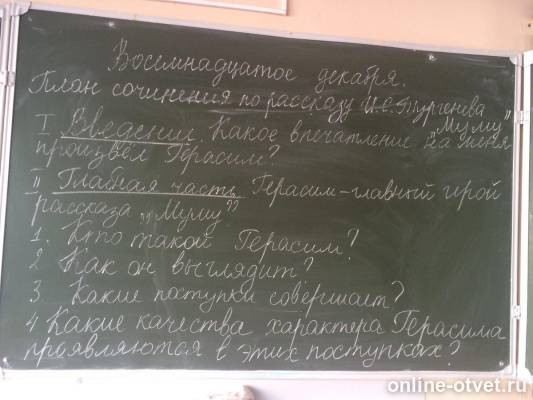 Восемнадцатое декабря.
План сочинения по рассказу И.С.Тургенева
„Муму”
I Введение. Какое впечатление на меня
произвёл Герасим?
II Главная часть Герасим-главный герой
рассказа „Муму”
1. Кто такой Герасим?
2 Как он выглядит?
3. Какие поступки совершает?
4 Какие качества характера Герасима
проявляются в этих поступках?
online-otvet.ru